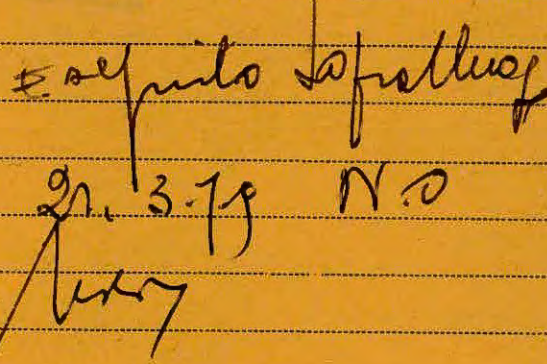 Eseguito sopralluog
21.3.79 N.O